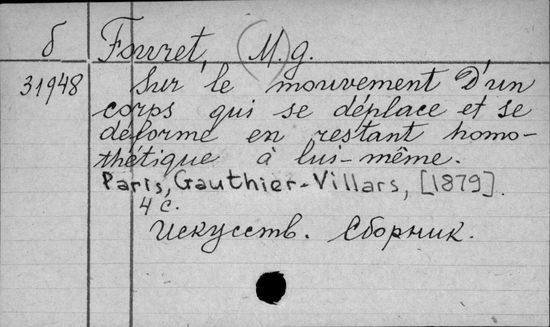 б Fouret, (M.) g.
31948 Sur le mouvement D'un
corps qui se déplace et se
déforme en restant homo-
thétique à lui-même.
Paris, Gauthier-Villars, [1879].
4 с.
Искусств. Сборник.